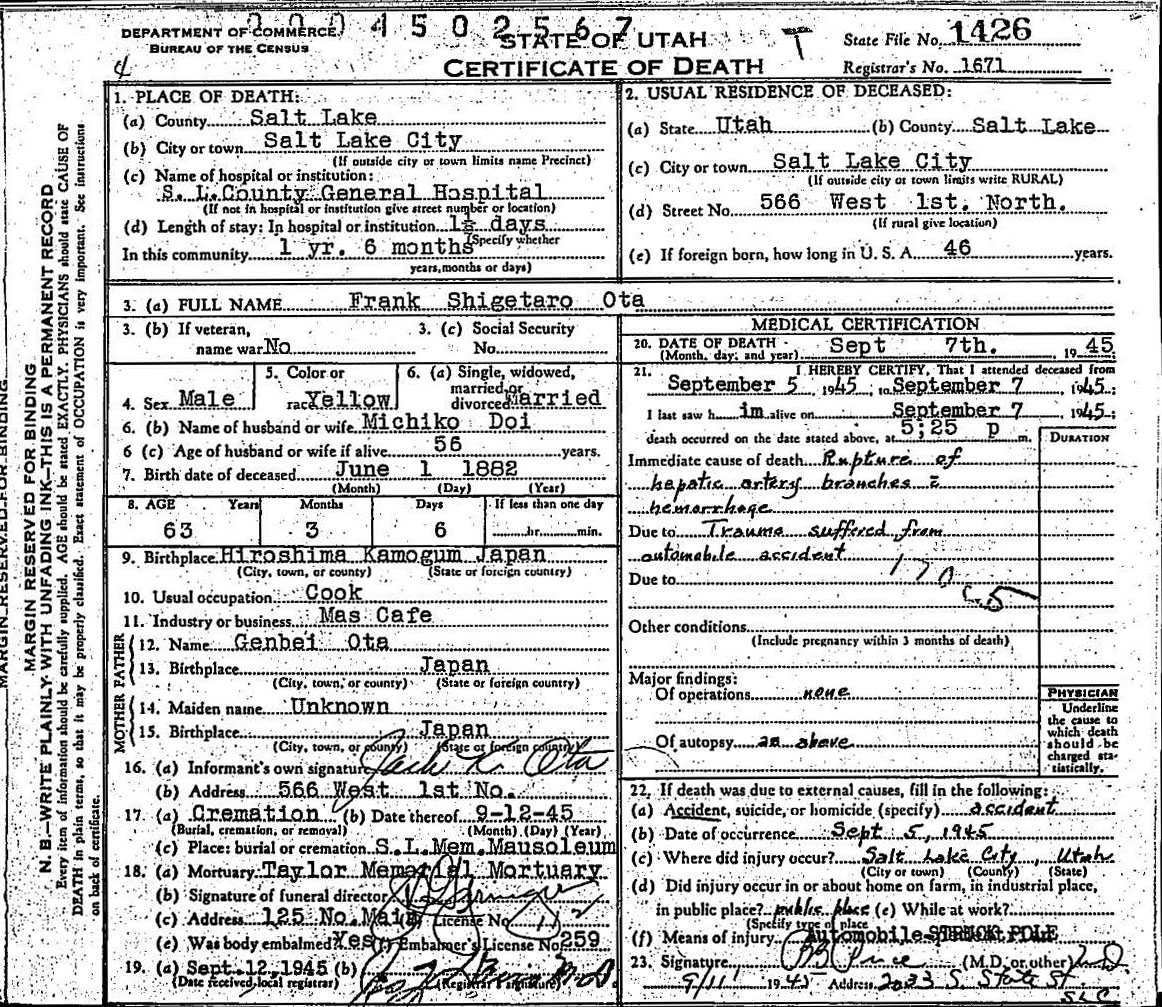 0004502567
DEPARTMENT OF COMMERCE
BUREAU OF THE CENSUS
STATE OF UTAH
CERTIFICATE OF DEATH
T
State File No. 1426
Registrar's No. 1671
4
MARGIN RESERVED FOR BINDING
MARGIN RESERVED FOR BINDING
N. B.—WRITE PLAINLY WITH UNFADING INK—THIS IS A PERMANENT RECORD
Every item of information should be carefully supplied. AGE should be stated EXACTLY. PHYSICIANS should state CAUSE OF
DEATH in plain terms, so that it may be properly classified. Exact statement of OCCUPATION is very important. See instructions
on back of certificate.
1. PLACE OF DEATH:
(a) County Salt Lake
(b) City or town Salt Lake City
(If outside city or town limits name Precinct)
(c) Name of hospital or institution:
S. L. County General Hospital
(If not in hospital or institution give street number or location)
(d) Length of stay: In hospital or institution 1½ days
(Specify whether
In this community 1 yr. 6 months
years, months or days)
2. USUAL RESIDENCE OF DECEASED:
(a) State Utah (b) County Salt Lake
(c) City or town Salt Lake City
(If outside city or town limits write RURAL)
(d) Street No. 566 West 1st. North.
(If rural give location)
(e) If foreign born, how long in U. S. A. 46 years.
3. (a) FULL NAME Frank Shigetaro Ota
3. (b) If veteran,
name war No
3. (c) Social Security
No.
4. Sex Male
5. Color or
race Yellow
6. (a) Single, widowed,
married, or
divorced Married
6. (b) Name of husband or wife Michiko Doi
6 (c) Age of husband or wife if alive 56 years.
7. Birth date of deceased June 1 1882
(Month) (Day) (Year)
8. AGE Years Months Days If less than one day
63 3 6 hr. min.
9. Birthplace Hiroshima Kamogum Japan
(City, town, or county) (State or foreign country)
10. Usual occupation Cook
11. Industry or business Mas Cafe
FATHER
12. Name Genbei Ota
13. Birthplace Japan
(City, town, or county) (State or foreign country)
MOTHER
14. Maiden name Unknown
15. Birthplace Japan
(City, town, or county) (State or foreign country)
16. (a) Informant's own signature Jack K. Ota
(b) Address 566 West 1st No.
17. (a) Cremation (b) Date thereof 9-12-45
(Burial, cremation, or removal) (Month) (Day) (Year)
(c) Place: burial or cremation S.L.Mem.Mausoleum
18. (a) Mortuary Taylor Memorial Mortuary
(b) Signature of funeral director
(c) Address 125 No. Main License No.
(e) Was body embalmed? Yes (f) Embalmer's License No. 259
19. (a) Sept. 12, 1945 (b)
(Date received local registrar) (Registrar's signature)
MEDICAL CERTIFICATION
20. DATE OF DEATH
(Month, day, and year) Sept 7th. , 1945
21. I HEREBY CERTIFY, That I attended deceased from
September 5, 1945, to September 7, 1945;
I last saw him alive on September 7, 1945;
death occurred on the date stated above, at 5;25 p m.
DURATION
Immediate cause of death Rupture of
hepatic artery branches c̄
hemorrhage
Due to Trauma suffered from
automobile accident
Due to
170
Other conditions
(Include pregnancy within 3 months of death)
Major findings:
Of operations none
Of autopsy as above
PHYSICIAN
Underline
the cause to
which death
should be
charged sta-
tistically.
22. If death was due to external causes, fill in the following:
(a) Accident, suicide, or homicide (specify) accident
(b) Date of occurrence Sept 5, 1945
(c) Where did injury occur? Salt Lake City, Utah
(City or town) (County) (State)
(d) Did injury occur in or about home on farm, in industrial place,
in public place? public place (e) While at work?
(Specify type of place
(f) Means of injury Automobile STRUCK POLE
23. Signature Price (M.D. or other) M.D.
9/11 1945 Address 2033 S. State St
SLC